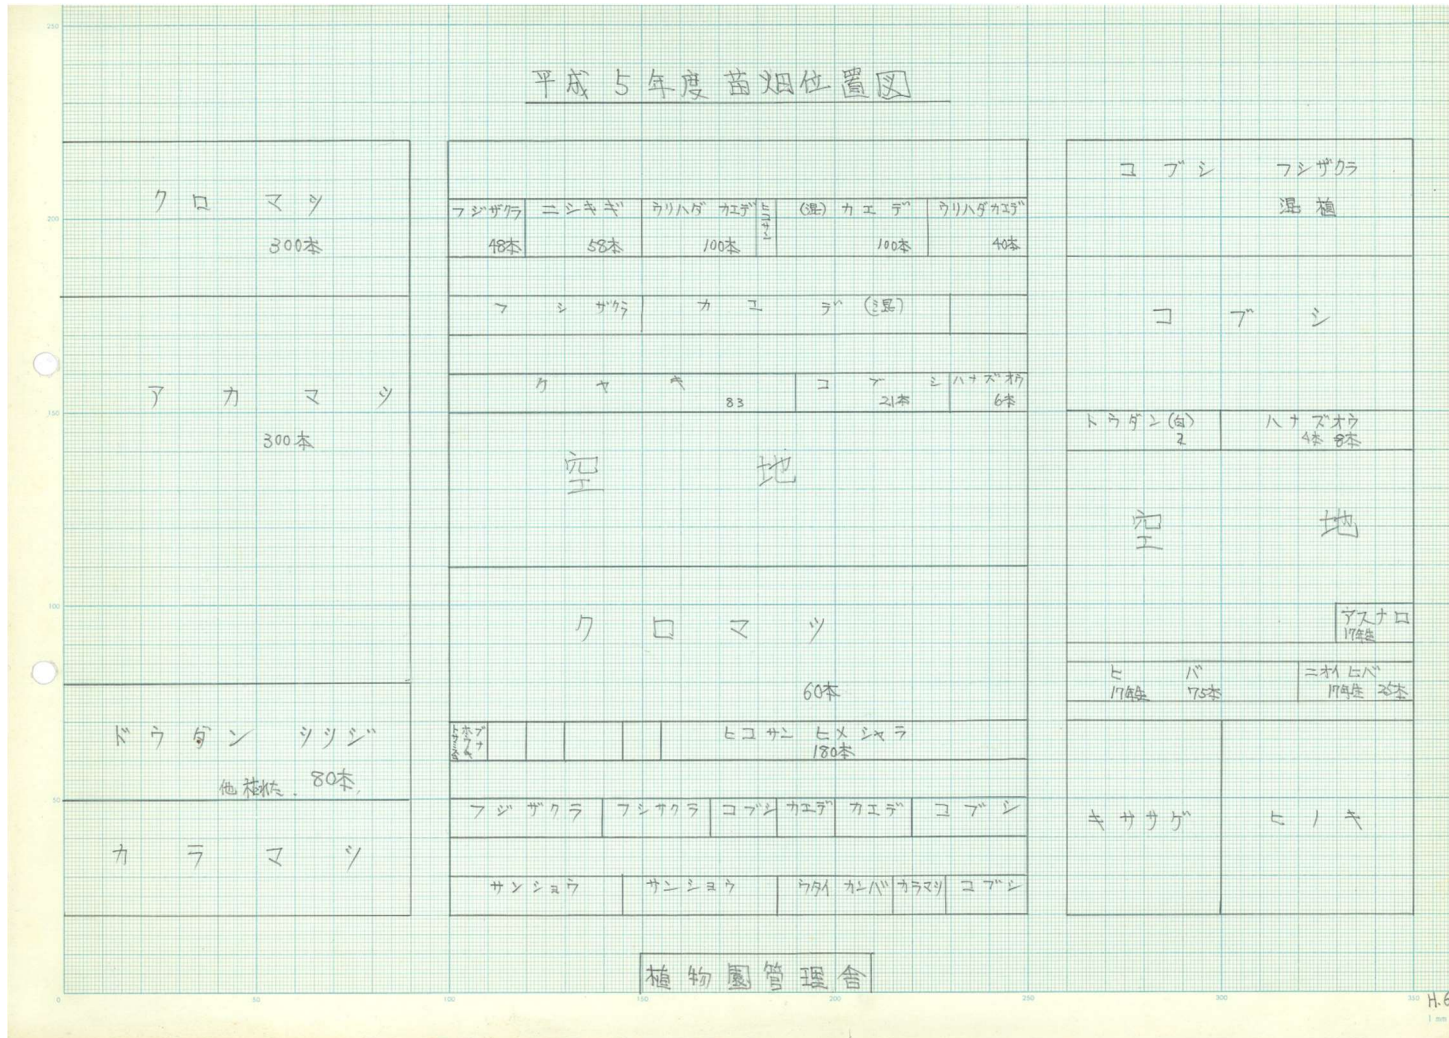 平成5年度苗畑位置図
クロマツ
300本
アカマツ
300本
ドウダンツツジ
他植栽. 80本.
カラマツ
フジザクラ 48本
ニシキギ 58本
ウリハダカエデ 100本
ヒコサン
(混)カエデ 100本
ウリハダカエデ 40本
フジザクラ
カエデ(混)
ケヤキ 83
コブシ 21本
ハナズオウ 6本
空地
クロマツ
60本
ブナ
ヒコサンヒメシャラ
180本
フジザクラ
フジザクラ
コブシ
カエデ
カエデ
コブシ
サンショウ
サンショウ
ウダイカンバ
カラマツ
コブシ
コブシ フジザクラ
混植
コブシ
ドウダン(白)
2
ハナズオウ
4本 8本
空地
アスナロ
17年生
ヒバ
17年生 75本
ニオイヒバ
17年生 26本
キササゲ
ヒノキ
植物園管理舎
H.6
250
200
150
100
50
0
50
100
150
200
250
300
350
1mm